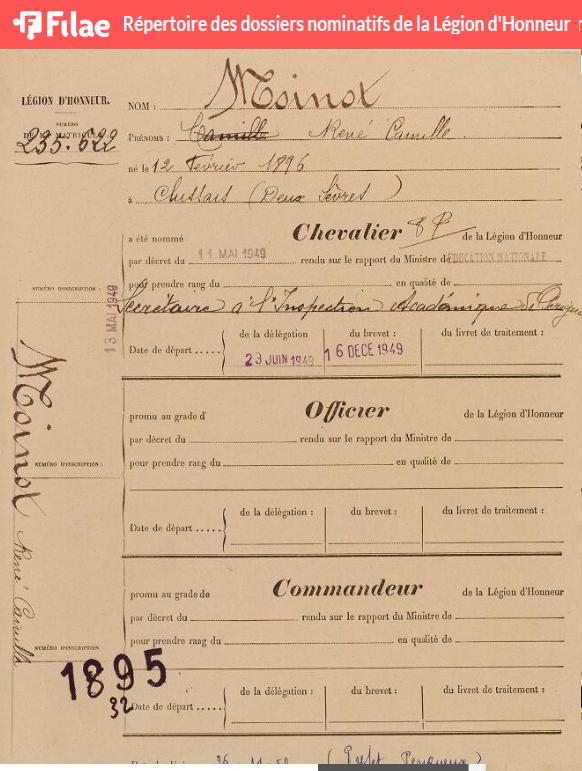 Filae Répertoire des dossiers nominatifs de la Légion d'Honneur
LÉGION D'HONNEUR.
NUMÉRO
DE MATRICULE
235.622
NOM : Moinot
PRÉNOMS : Camille René Camille.
né le 12 Février 1896
à Clussais (Deux Sèvres)
a été nommé Chevalier de la Légion d'Honneur
par décret du 11 MAI 1949 rendu sur le rapport du Ministre de EDUCATION NATIONALE
pour prendre rang du en qualité de
NUMÉRO D'INSCRIPTION :
13 MAI 1949
Secrétaire à l'Inspection Académique de
de la délégation du brevet : du livret de traitement :
Date de départ .....
23 JUIN 1949 16 DECE 1949
Moinot René Camille
promu au grade d' Officier de la Légion d'Honneur
par décret du rendu sur le rapport du Ministre de
pour prendre rang du en qualité de
NUMÉRO D'INSCRIPTION :
de la délégation : du brevet : du livret de traitement :
Date de départ .....
promu au grade de Commandeur de la Légion d'Honneur
par décret du rendu sur le rapport du Ministre de
pour prendre rang du en qualité de
NUMÉRO D'INSCRIPTION
1895
32
de la délégation : du brevet : du livret de traitement :
Date de départ .....